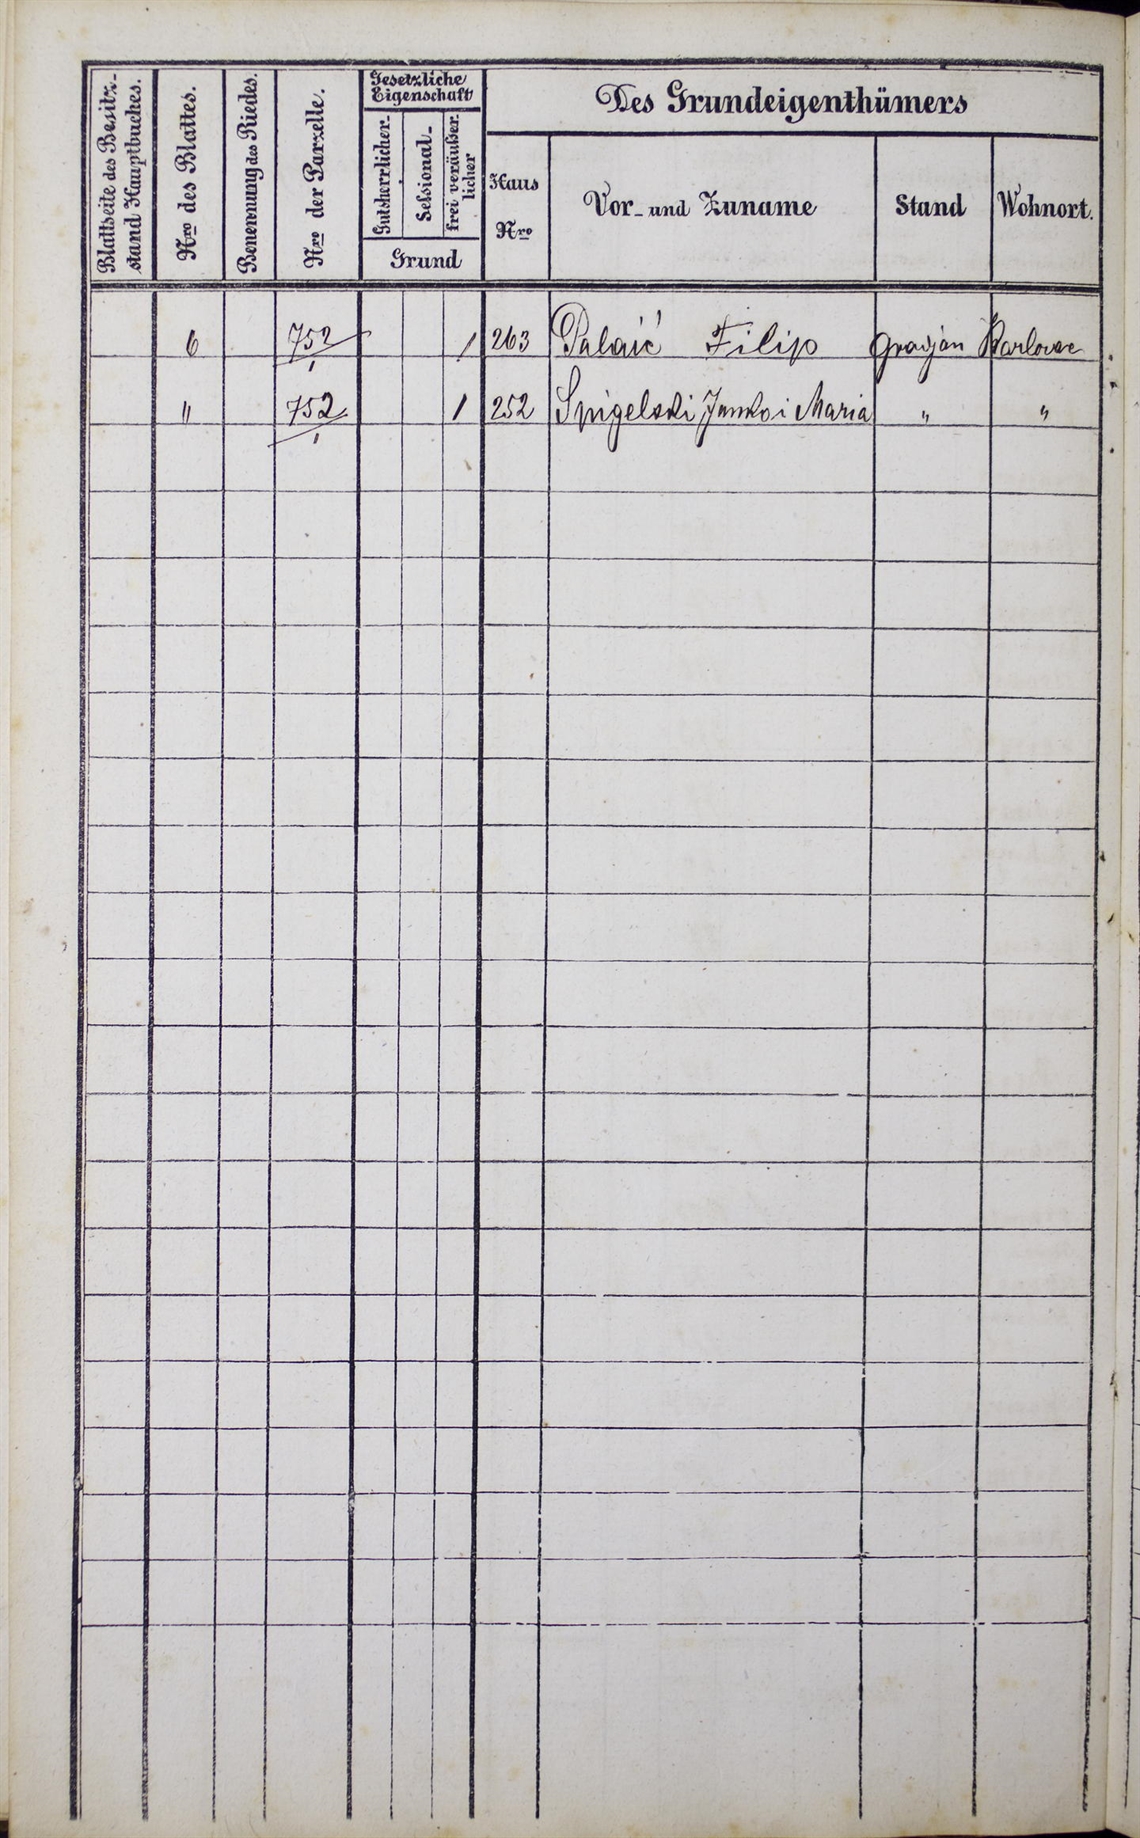 Blattseite des Besitz-
stand Hauptbuches.
Nro des Blattes.
Benennung des Riedes.
Nro der Parzelle.
Gesetzliche
Eigenschaft
Gutsherrlicher-
Seſsional-
frei veräußer-
licher
Grund
Des Grundeigenthümers
Haus
Nro
Vor- und Zuname
Stand
Wohnort.
6 752/1 1 263 Palaić Filip Gradjan Karlovac
" 752/1 1 252 Spigelski Janko i Maria " "